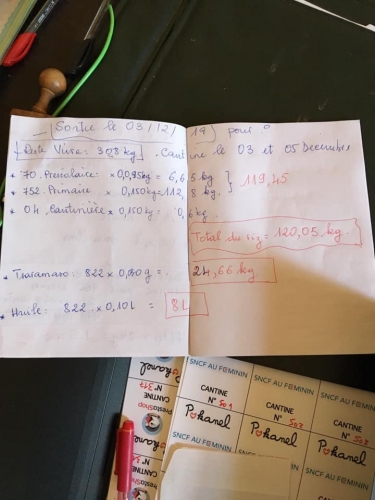 Sortie le 03/12/19 pour
Reste Vivre: 308 kg . Cantine le 03 et 05 Decembre
* 70 Prescolaire × 0,095kg = 6,65 kg } 119,45
* 752 Primaire × 0,150kg = 112,8 kg.
* 04 Cantinière × 0,150 kg = 0,6 kg.
Total du riz = 120,05 kg.
* 822 × 0,30g = 24,66 kg
* Huile: 822 × 0,10L = 8L
SNCF AU FEMININ
CANTINE
N° 501
Pokanel
SNCF AU FEMININ
CANTINE
N° 502
Pokanel
SNCF AU FEMININ
CANTINE
Pokanel
SNCF AU FEMININ
CANTINE
PrestaShop